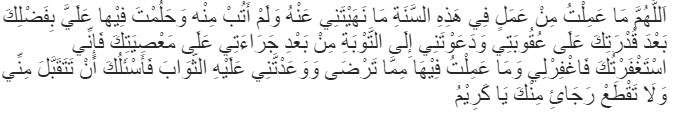 اَللّٰهُمَّ مَا عَمِلْتُ مِنْ عَمَلٍ فِي هَذِهِ السَّنَةِ مَا نَهَيْتَنِي عَنْهُ وَلَمْ أَتُبْ مِنْه وَحَلُمْتَ فِيْها عَلَيَّ بِفَضْلِكَ
بَعْدَ قُدْرَتِكَ عَلَى عُقُوبَتِي وَدَعَوْتَنِي إِلَى التَّوْبَةِ مِنْ بَعْدِ جَرَاءَتِي عَلَى مَعْصِيَتِكَ فَإِنِّي
اسْتَغْفَرْتُكَ فَاغْفِرْلِي وَمَا عَمِلْتُ فِيْهَا مِمَّا تَرْضَى وَوَعَدْتَّنِي عَلَيْهِ الثَّوَابَ فَأَسْئَلُكَ أَنْ تَتَقَبَّلَ مِنِّي
وَلَا تَقْطَعْ رَجَائِ مِنْكَ يَا كَرِيْمُ